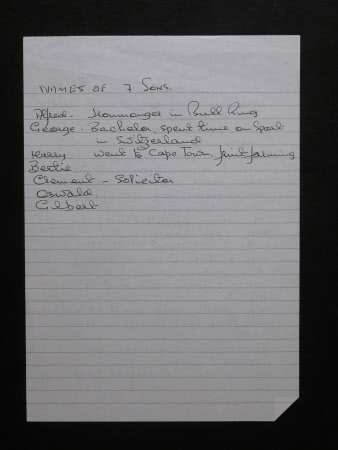 NAMES OF 7 SONS.
Alfred - Ironmonger in Bull Ring
George - Bachelor, spent time on Sport
in Switzerland
Harry went to Cape Town, fruit farming
Bertie
Clement - Solicitor
Oswald
Gilbert